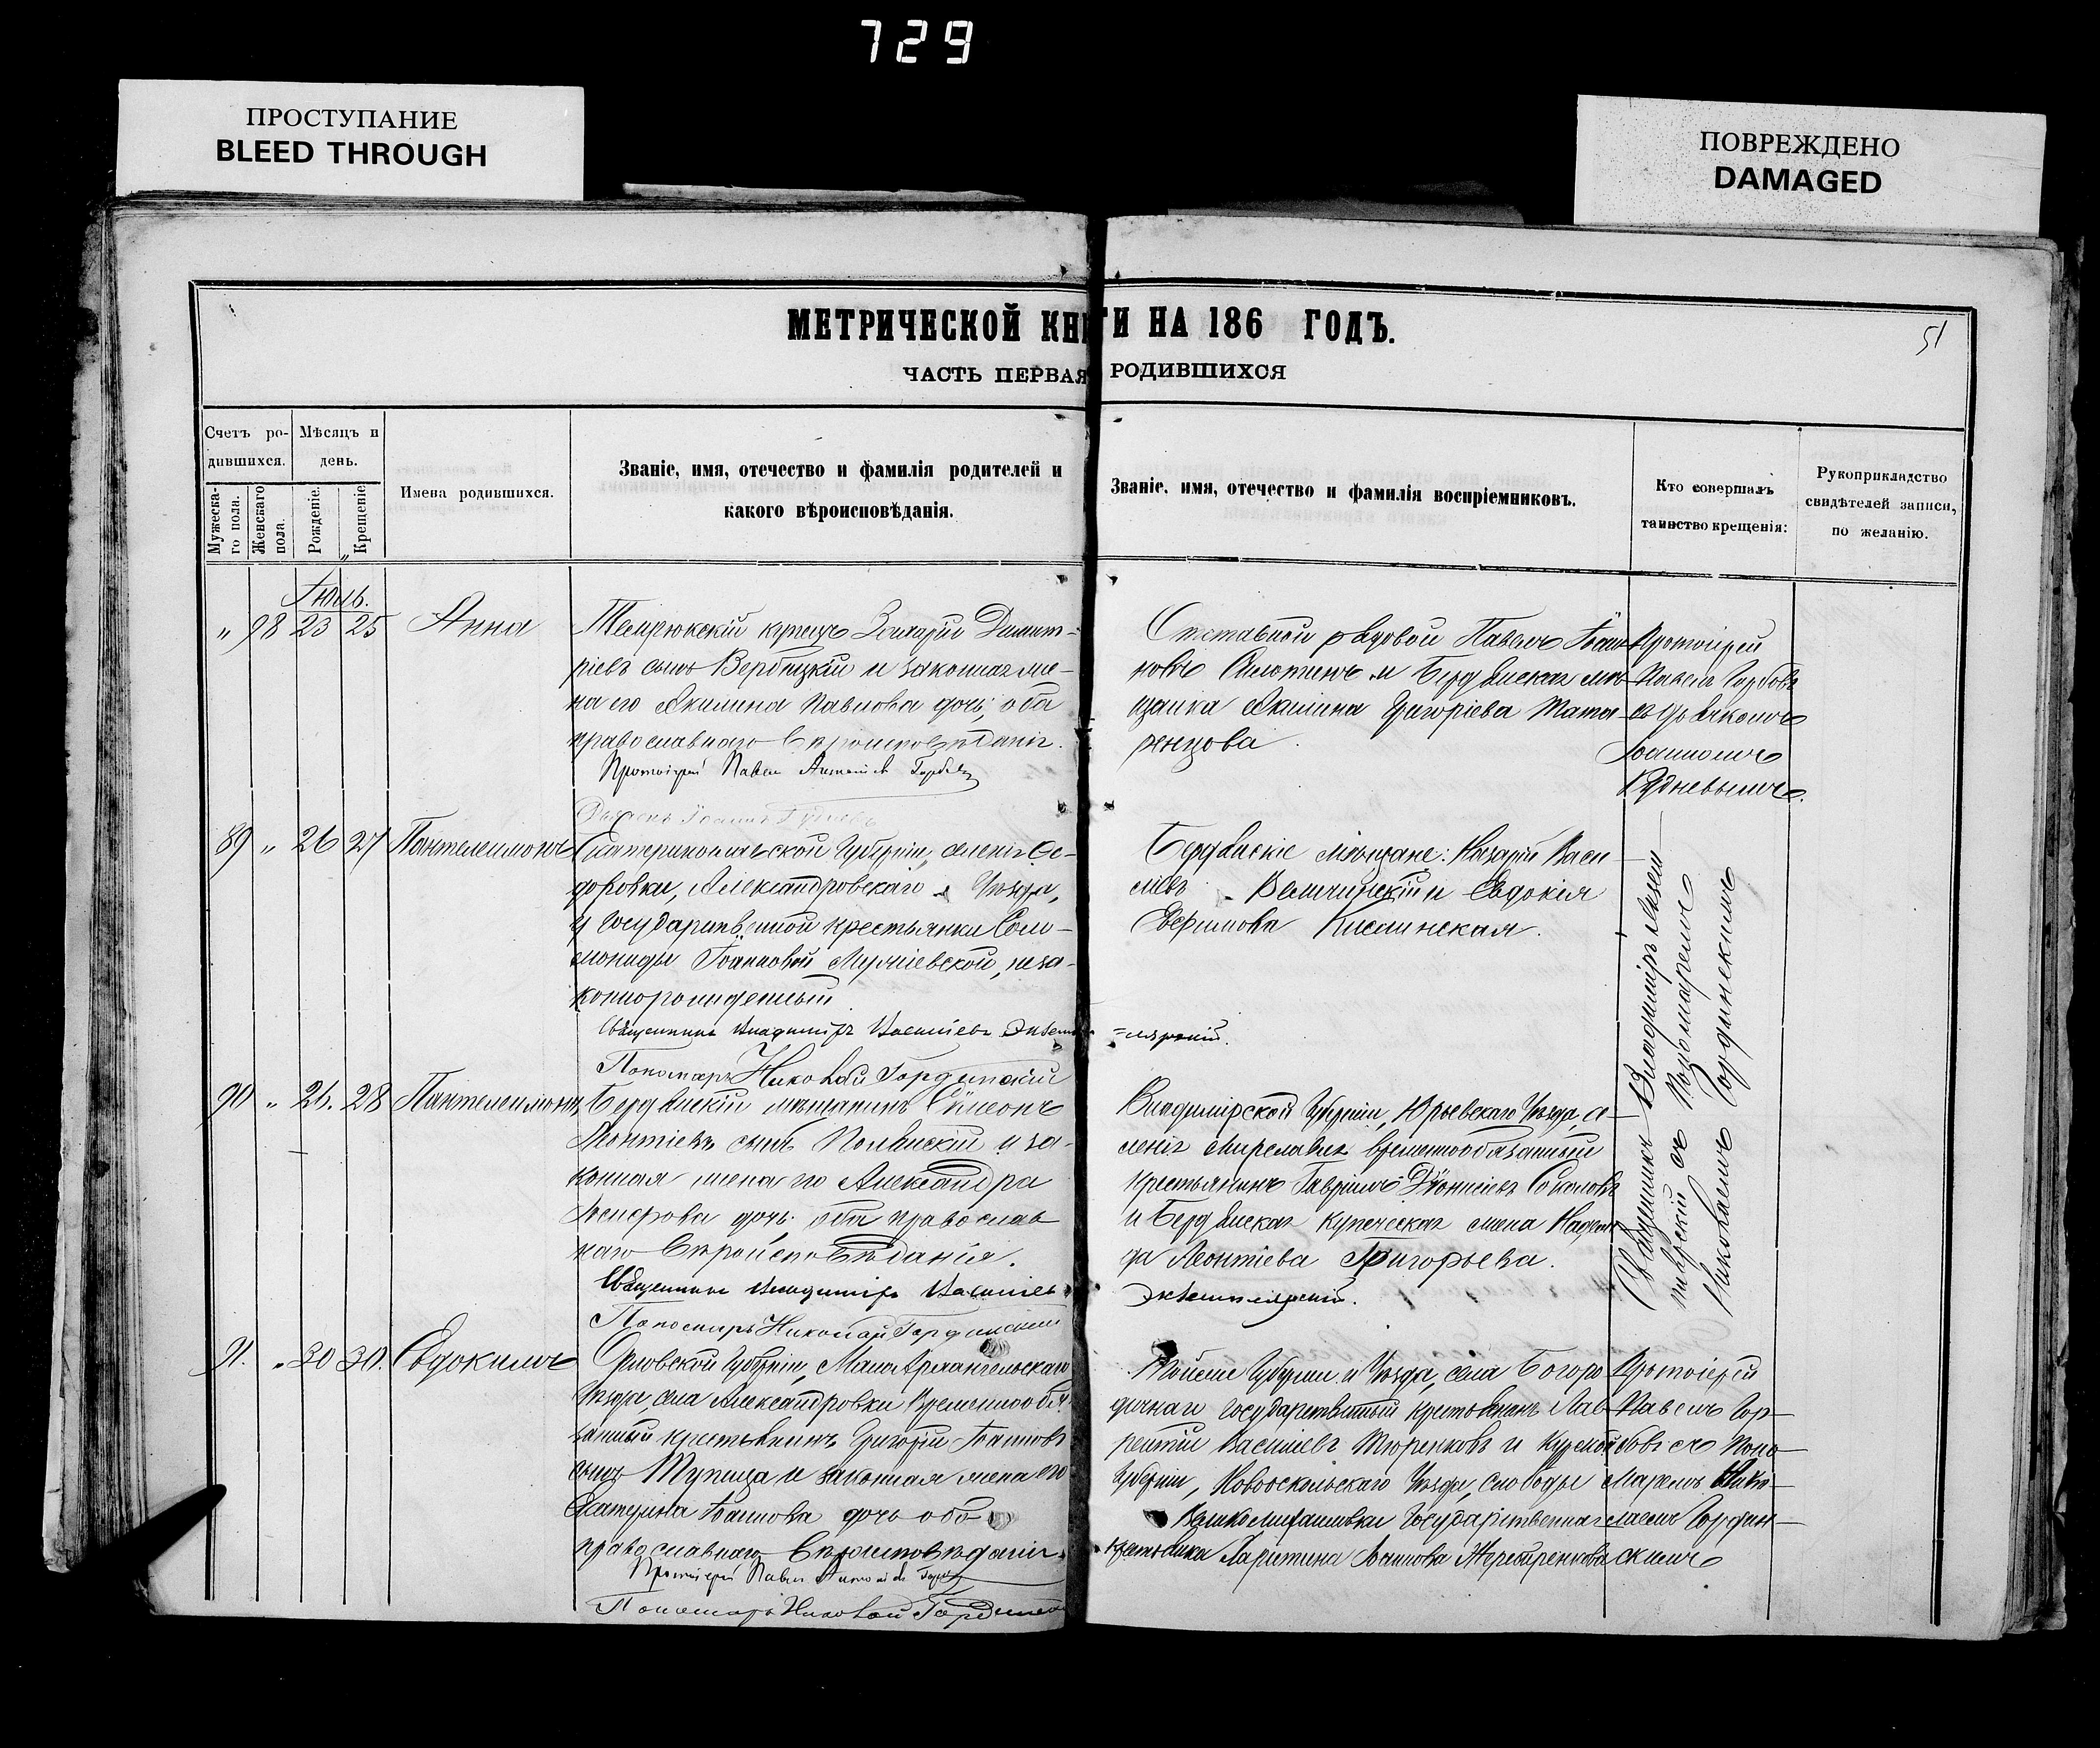 729
ПРОСТУПАНИЕ
BLEED THROUGH
ПОВРЕЖДЕНО
DAMAGED
МЕТРИЧЕСКОЙ КНИГИ НА 186 ГОДЪ.
51
ЧАСТЬ ПЕРВАЯ РОДИВШИХСЯ
Счетъ ро-
дившихся.
Мужеска-
го пола.
Женскаго
пола.
Мѣсяцъ и
день.
Рожденіе.
Крещеніе
Имена родившихся.
Званіе, имя, отечество и фамилія родителей и
какого вѣроисповѣданія.
Званіе, имя, отечество и фамилія воспріемниковъ.
Кто совершалъ
таинство крещенія:
Рукоприкладство
свидѣтелей записи,
по желанію.
Іюль.
" 98 23 25 Анна
Темрюкскій купецъ Захарій Димит-
ріевъ сынъ Вербицкій и законная же-
на его Акилина Павлова дочь, оба
православнаго вѣроисповѣданія.
Протоіерей Павелъ Гербовъ
Діаконъ Іоаннъ Рудневъ
Отставной рядовой Павелъ Іоан-
новъ и Бердянская мѣ-
щанка Акилина Григоріева
Протоіерей
Павелъ Гербовъ
съ Діакономъ
Іоанномъ
Рудневымъ.
89 " 26 27 Пантелеимонъ
Екатеринославской Губерніи, селенія Ѳе-
доровки, Александровскаго Уѣзда,
у Государственной крестьянки Соло-
мониды Іоанновой неза-
коннорожденный
Священникъ Владимиръ Васильевъ Экземплярскій.
Пономарь Николай Гординскій
Бердянскіе мѣщане: Назарій Васи-
ліевъ и Евдокія
Ефимова
90 " 26. 28 Пантелеимонъ
Бердянскій мѣщанинъ Симеонъ
Леонтіевъ сынъ Полянскій и за-
конная жена его Александра
дочь. оба православ-
наго вѣроисповѣданія.
Священникъ Владимиръ Васильевъ Экземплярскій.
Пономарь Николай Гординскій
Владимірской Губерніи, Юрьевскаго Уѣзда, се-
ленія временнообязанный
крестьянинъ Гавріилъ Діонисіевъ Соколовъ
и Бердянская купеческая жена Надеж-
да Леонтіева Григорьева.
Священникъ Владимиръ Экзем-
плярскій съ Пономаремъ
Николаемъ Гординскимъ
91. " 30 30. Евдокимъ
Орловской Губерніи, Малоархангельскаго
Уѣзда, села Александровки Временнообя-
занный крестьянинъ Григорій Іоанновъ
сынъ Тупица и законная жена его
Екатерина Іоаннова дочь оба
православнаго вѣроисповѣданія.
Протоіерей Павелъ
Пономарь Николай Гординскій
Тойже Губерніи и Уѣзда, села Богоро-
дичнаго Государственный крестьянинъ Лав-
рентій Васильевъ Тюренковъ и Курской
Губерніи, Новооскольскаго Уѣзда, Слободы
Великомихайловки Государственная
крестьянка Харитина Іоаннова
Протоіерей
Павелъ Гер-
бовъ съ Поно-
маремъ Нико-
лаемъ Гордин-
скимъ